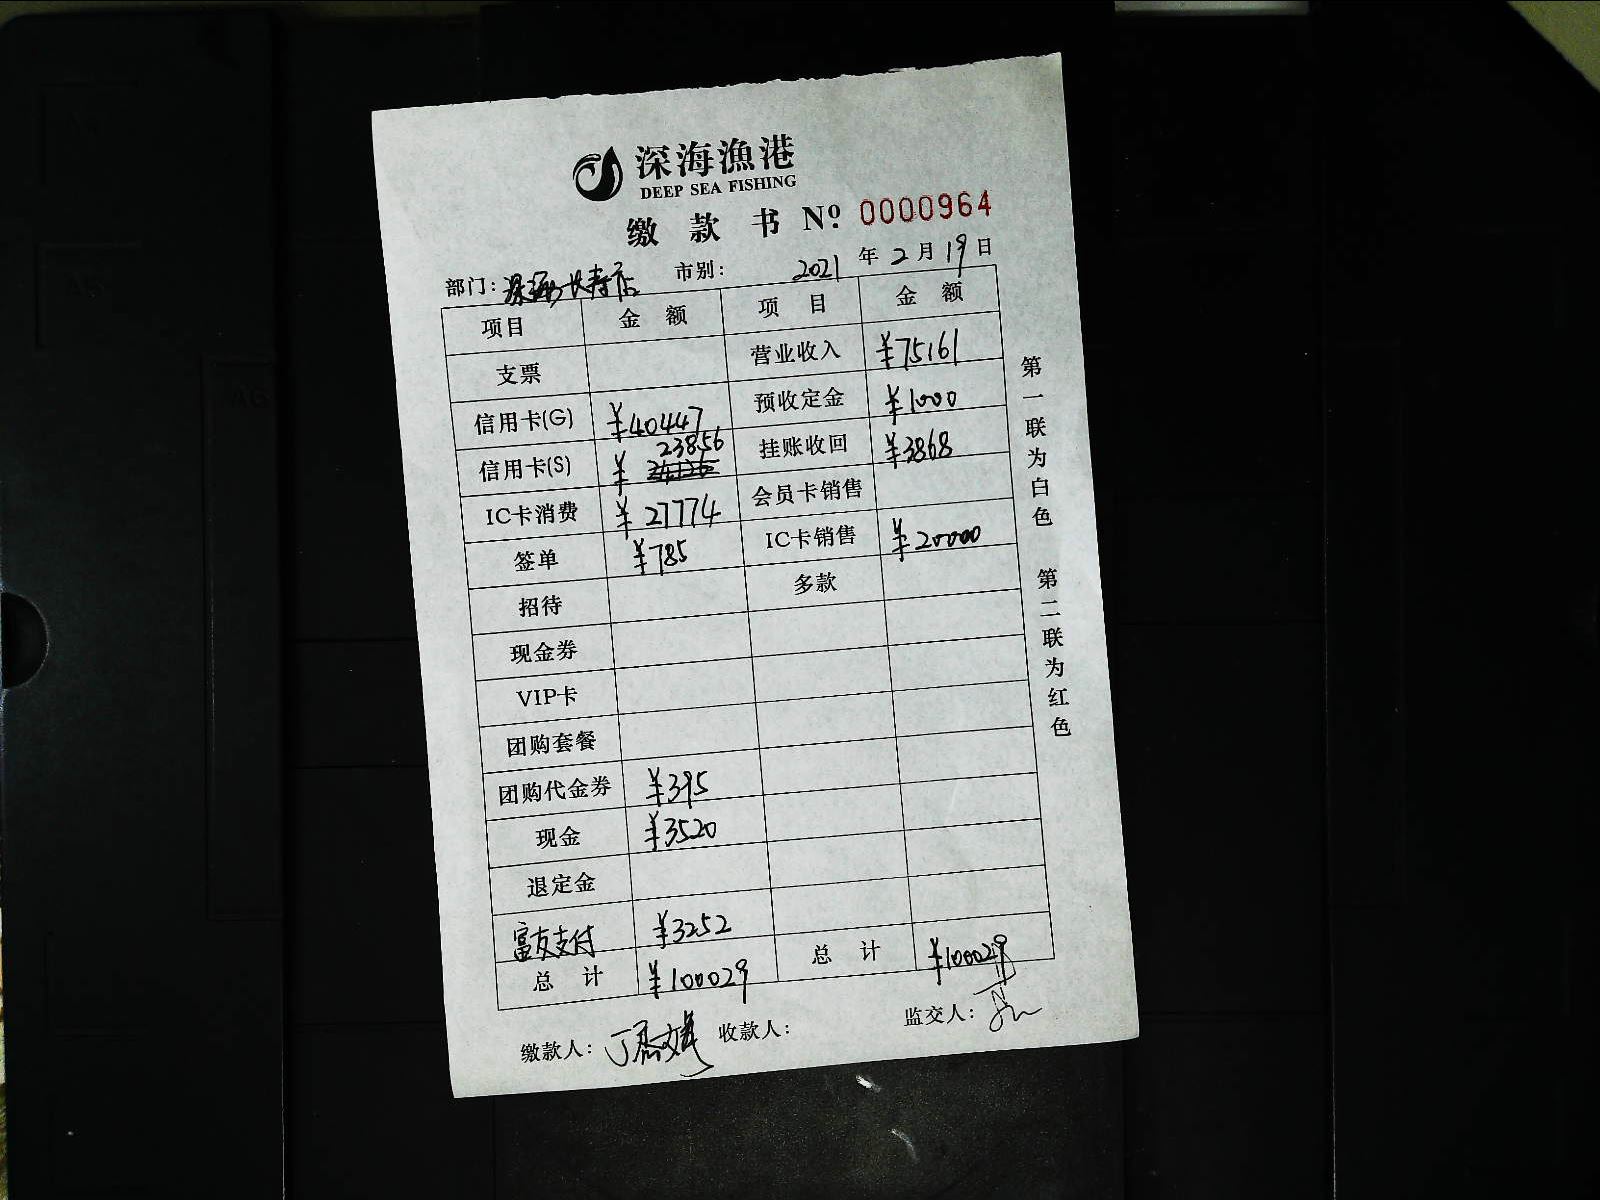 深海漁港
DEEP SEA FISHING
缴款书 Nº: 0000964
部门: 深海长寿店 市别: 2021年2月19日
项目 金额 项目 金额
支票 营业收入 ¥75161
信用卡(G) ¥40447 预收定金 ¥1000
信用卡(S) ¥23856 挂账收回 ¥3868
IC卡消费 ¥27774 会员卡销售
签单 ¥785 IC卡销售 ¥20000
招待 多款
现金券
VIP卡
团购套餐
团购代金券 ¥395
现金 ¥3520
退定金
富友支付 ¥3252
总计 ¥100029 总计 ¥100029
缴款人: 收款人: 监交人:
第一联为白色 第二联为红色